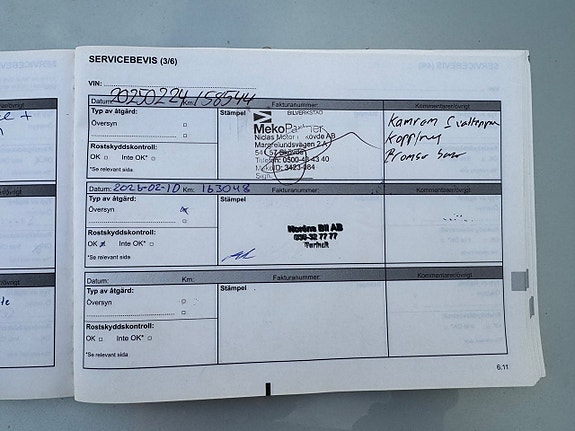 SERVICEBEVIS (3/6)
VIN:
Datum: 20250224 Km: 158544 Fakturanummer: Kommentarer/övrigt
Typ av åtgärd:
Översyn
Rostskyddskontroll:
OK Inte OK*
*Se relevant sida
Stämpel
BILVERKSTAD
MekoPartner
Niclas Motor i Skövde AB
Margrelundsvägen 2 A
541 57 Skövde
Telefon: 0500-43 40
MekoID: 3423-084
Sign.
Kamrem
Koppling
Datum: 2026-02-10 Km: 163048 Fakturanummer: Kommentarer/övrigt
Typ av åtgärd:
Översyn
Rostskyddskontroll:
OK Inte OK*
*Se relevant sida
Stämpel
Noréns Bil AB
036-32 77 77
Datum: Km: Fakturanummer: Kommentarer/övrigt
Typ av åtgärd:
Översyn
Rostskyddskontroll:
OK Inte OK*
*Se relevant sida
Stämpel
6.11